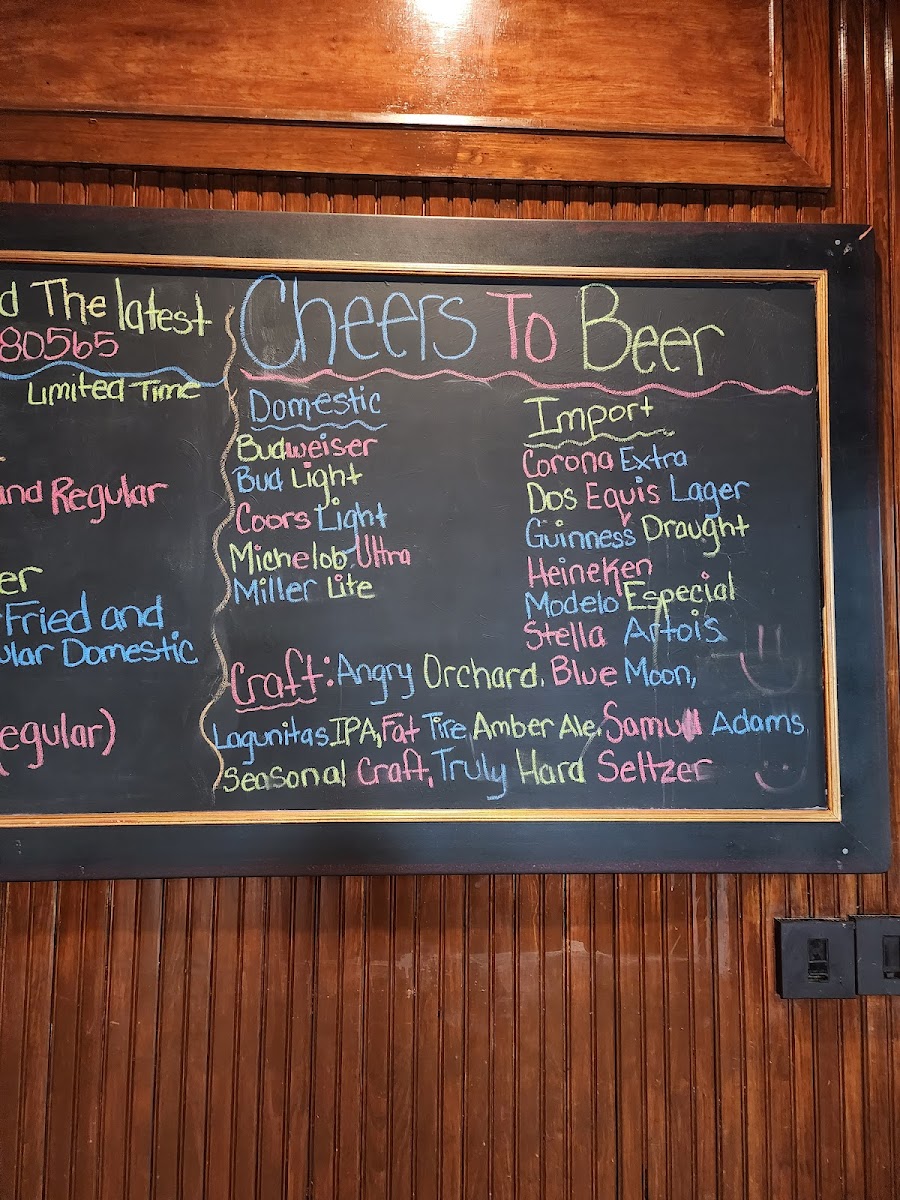 d The latest
80565
Limited Time
and Regular
er
Fried and
ular Domestic
egular)
Cheers To Beer
Domestic
Budweiser
Bud Light
Coors Light
Michelob Ultra
Miller Lite
Import
Corona Extra
Dos Equis Lager
Guinness Draught
Heineken
Modelo Especial
Stella Artois
Craft: Angry Orchard, Blue Moon,
Lagunitas IPA, Fat Tire Amber Ale, Samuel Adams
Seasonal Craft, Truly Hard Seltzer